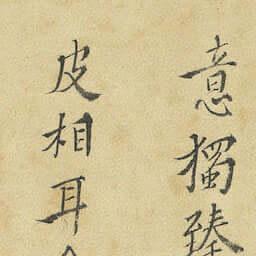 意獨臻
皮相耳